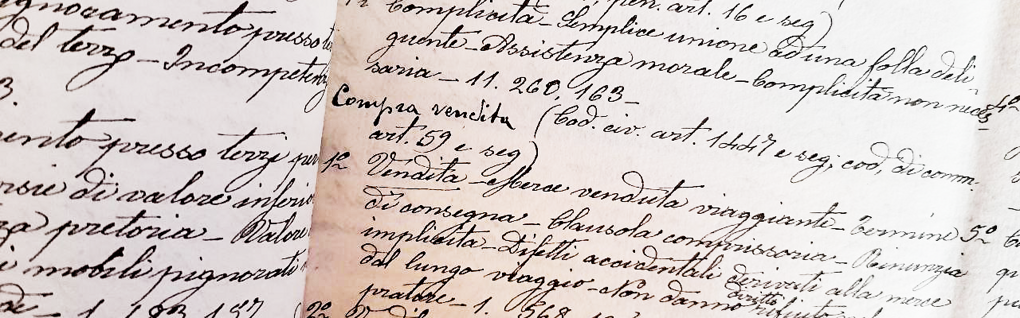 ignoramento presso
del terzo - Incompetenz
3.
ento presso terzi per
rsie di valore inferio
za pretoria - Valore
i mobili pignorati
pen. art. 16 e seg)
Complicità - Semplice unione ad una folla deli-
quente - Assistenza morale - Complicità non neces-
saria - 11. 260, 163 -
Compra vendita (Cod. civ. art. 1447 e seg; cod. di comm.
art. 59 e seg)
1º Vendita - Merce venduta viaggiante - Termini
di consegna - Clausola compissoria - Rinunzia
implicita - Difetti accidentali derivati alla merce
dal lungo viaggio - Non danno diritto
pratore - 1. 368
2º
4º
5º